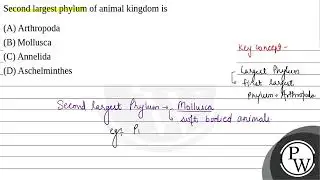 Second largest phylum of animal kingdom is
(A) Arthropoda
(B) Mollusca
(C) Annelida
(D) Aschelminthes
Key concept -
Largest Phylum
first largest
Phylum = Arthropoda
Second largest Phylum → Mollusca
soft bodied animals
eg: Pi
PW